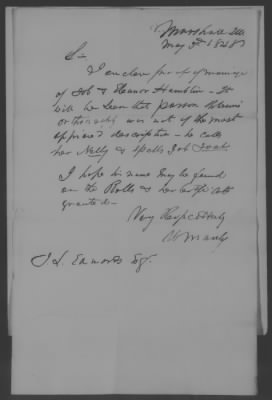 Marshall Ills
May 3d 1848
Sir
I enclose proof of marriage
of Job & Eleanor Hamilton - It
will be seen that parson
orthography was not of the most
approved description - he calls
her Nelly & spells Job
I hope his name may be found
on the Rolls & her certificate
granted -
Very Respectfully
J. L. Edwards Esqr.